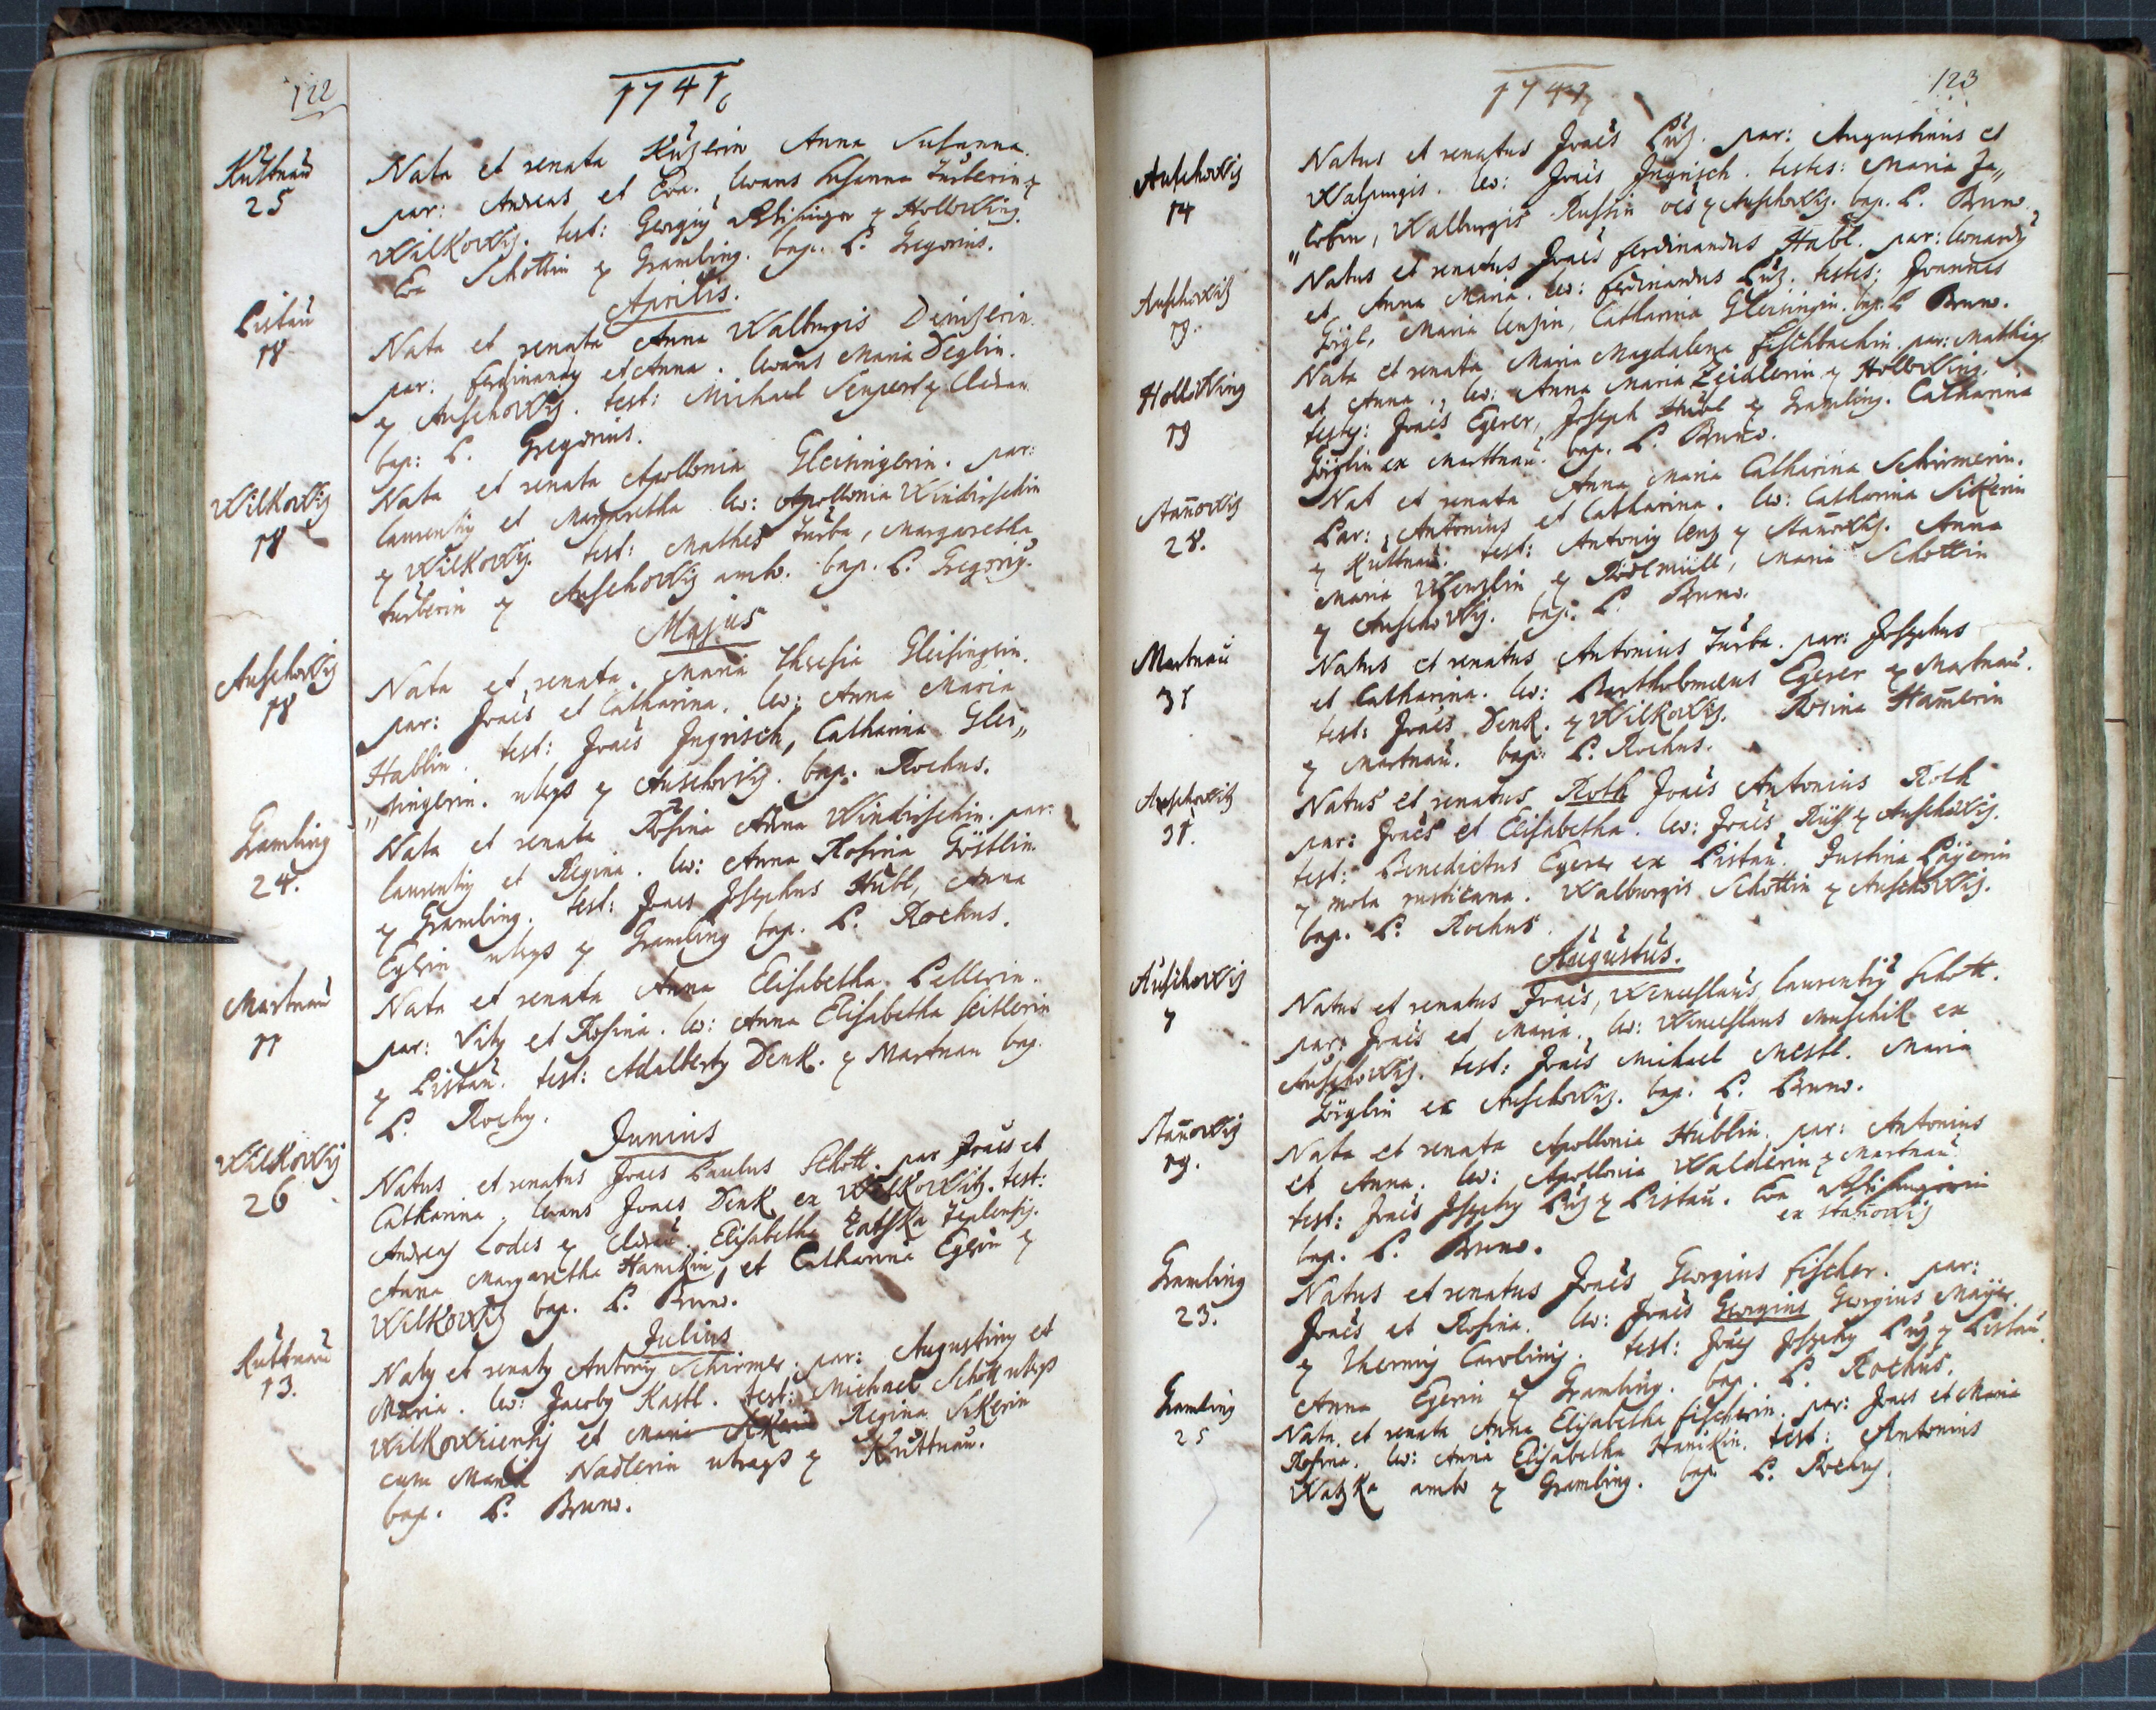 122
1741
Kuttnau
25
Nata et renata Kützerin Anna Susanna.
par: Andreas et Eva. levans Susanna Turberin ex
Wilkowitz. test: Georgiy ex Hollowing.
Eva Schottin ex Gramling. bap. P. Gregorius.
Aprilis.
Pistau
18
Nata et renata Anna Walburgis
par: Ferdinandy et Anna. levans Maria Deglin.
ex Auschowitz. test: Michael ex
bap: P. Gregorius.
Wilkowitz
18
Nata et renata Apollonia Gleisingerin. par:
laurentiy et Margaretha lev: Apollonia Windirschin
ex Wilkowitz. test: Mathes Turba, Margaretha
Turberin ex Auschowitz ambo. bap. P. Gregoriy.
Majus
Auschowitz
18
Nata et renata Maria Theresia Gleisingerin.
par: Joães et Catharina. lev: Anna Maria
Hablin. test: Joães Ingrisch, Catharina Glei„
„singerin. utrqs ex Auschowitz. bap. Rochus.
Gramling
24.
Nata et renata Rosina Anna Windirschin. par:
laurentiy et Regina. lev: Anna Rosina Göstlin
ex Gramling. test: Joães Josephus Hübl, Anna
Egerin utrqs ex Gramling bap. P. Rochus.
Martnau
11
Nata et renata Anna Elisabetha Pellerin.
par: Vity et Rosina. lev: Anna Elisabetha Seitlerin
ex Pistau. test: Adalberty Denk. ex Martnau bap.
P. Rochy.
Junius
Wilkowitz
26
Natus et renatus Joães Paulus Schott. par Joães et
Catharina. levans Joães Denk ex Wilkowitz. test:
Andreas Lodes ex. Elisabetha Zatska Teplensis.
Anna Margaretha Hanikin, et Catharina Egerin ex
Wilkowitz bap. P. Bruno.
Julius
Kuttnau
13.
Naty et renaty Antoniy Schirmer. par: Augustiny et
Maria. lev: Jacoby Kastl. test: Michael Schott utrqs
Wilkowiciensis et Maria Sikerin Regina Sikerin
cum Maria Nadlerin utraqs ex Kuttnau.
bap. P. Bruno.
123
1741
Auschowitz
14
Natus et renatus Joães Pütz. par: Augustinus et
Walpurgis. lev: Joães Ingrisch. testes: Maria Ja„
„cobin, Walburgis Russin oẽs ex Auschowitz. bap. P. Bruno.
Auschowitz
19.
Natus et renatus Joães ferdinandus Habl. par: leonardy
et Anna Maria. lev: ferdinandus Pütz. testes: Joannes
Görgl, Maria lentzin, Catharina Gleisingin. bap. P Bruno.
Hollowing
19
Nata et renata Maria Magdalena Fischbachin. par: Mathias
et Anna. lev: Anna Maria Zeidlerin ex Hollowing.
testy: Joães Egerer, Joseph Hübl ex Gramling. Catharina
Görglin ex Marttnau. bap. P. Bruno.
Stañowitz
28.
Nat et renata Anna Maria Catharina Schirmerin.
Par: Antonius et Catharina. lev: Catharina Sikerin
ex Kuttnau. test: Antoniy lentz ex Stañowitz. Anna
Maria Wenzlin ex Rödlmüll, Maria Schottin
ex Auschowitz. bap. P. Bruno.
Martnau
31
Natus et renatus Antonius Turba. par: Josephus
et Catharina. lev: Bartholomæus Egerer ex Martnau.
test: Joães Denk. ex Wilkowitz. Rosina Hamerin
ex Martnau. bap: P. Rochus.
Auschowitz
31.
Natus et renatus Roth Joães Antonius Roth
par: Joães et Elisabetha. lev: Joães Rüss ex Auschowitz.
test: Benedictus Egerer ex Pistau. Justina Päyerin
ex mola rusticana. Walburgis Schottin ex Auschowitz.
bap. P. Rochus.
Augustus.
Auschowitz
7
Natus et renatus Joães, Wenceslaus, laurentiy Schott.
par: Joães et Maria. lev: Wenceslaus Muschik ex
Auschowitz. test: Joães Michael Mestl. Maria
Görglin ex Auschowitz. bap. P. Bruno.
Stañowitz
19.
Nata et renata Apollonia Hüblin. par: Antonius
et Anna. lev: Apollonia Walderin ex Martnau
test: Joães Josephy Pütz ex Pistau. Eva
ex Stañowitz
bap. P. Bruno.
Gramling
23.
Natus et renatus Joães Georgius Fischer. par:
Joães et Rosina. lev: Joães Georgius Georgius Mayer
ex Thermis Carolinis. test: Joães Josephy Pütz ex Pistau.
Anna Egerin ex Gramling. bap. P. Rochus.
Gramling
25
Nata et renata Anna Elisabetha Fischerin. par: Joães et Maria
Rosina. lev: Anna Elisabetha Hanikin. test: Antonius
Watzka ambo ex Gramling. bap. P. Rochus.